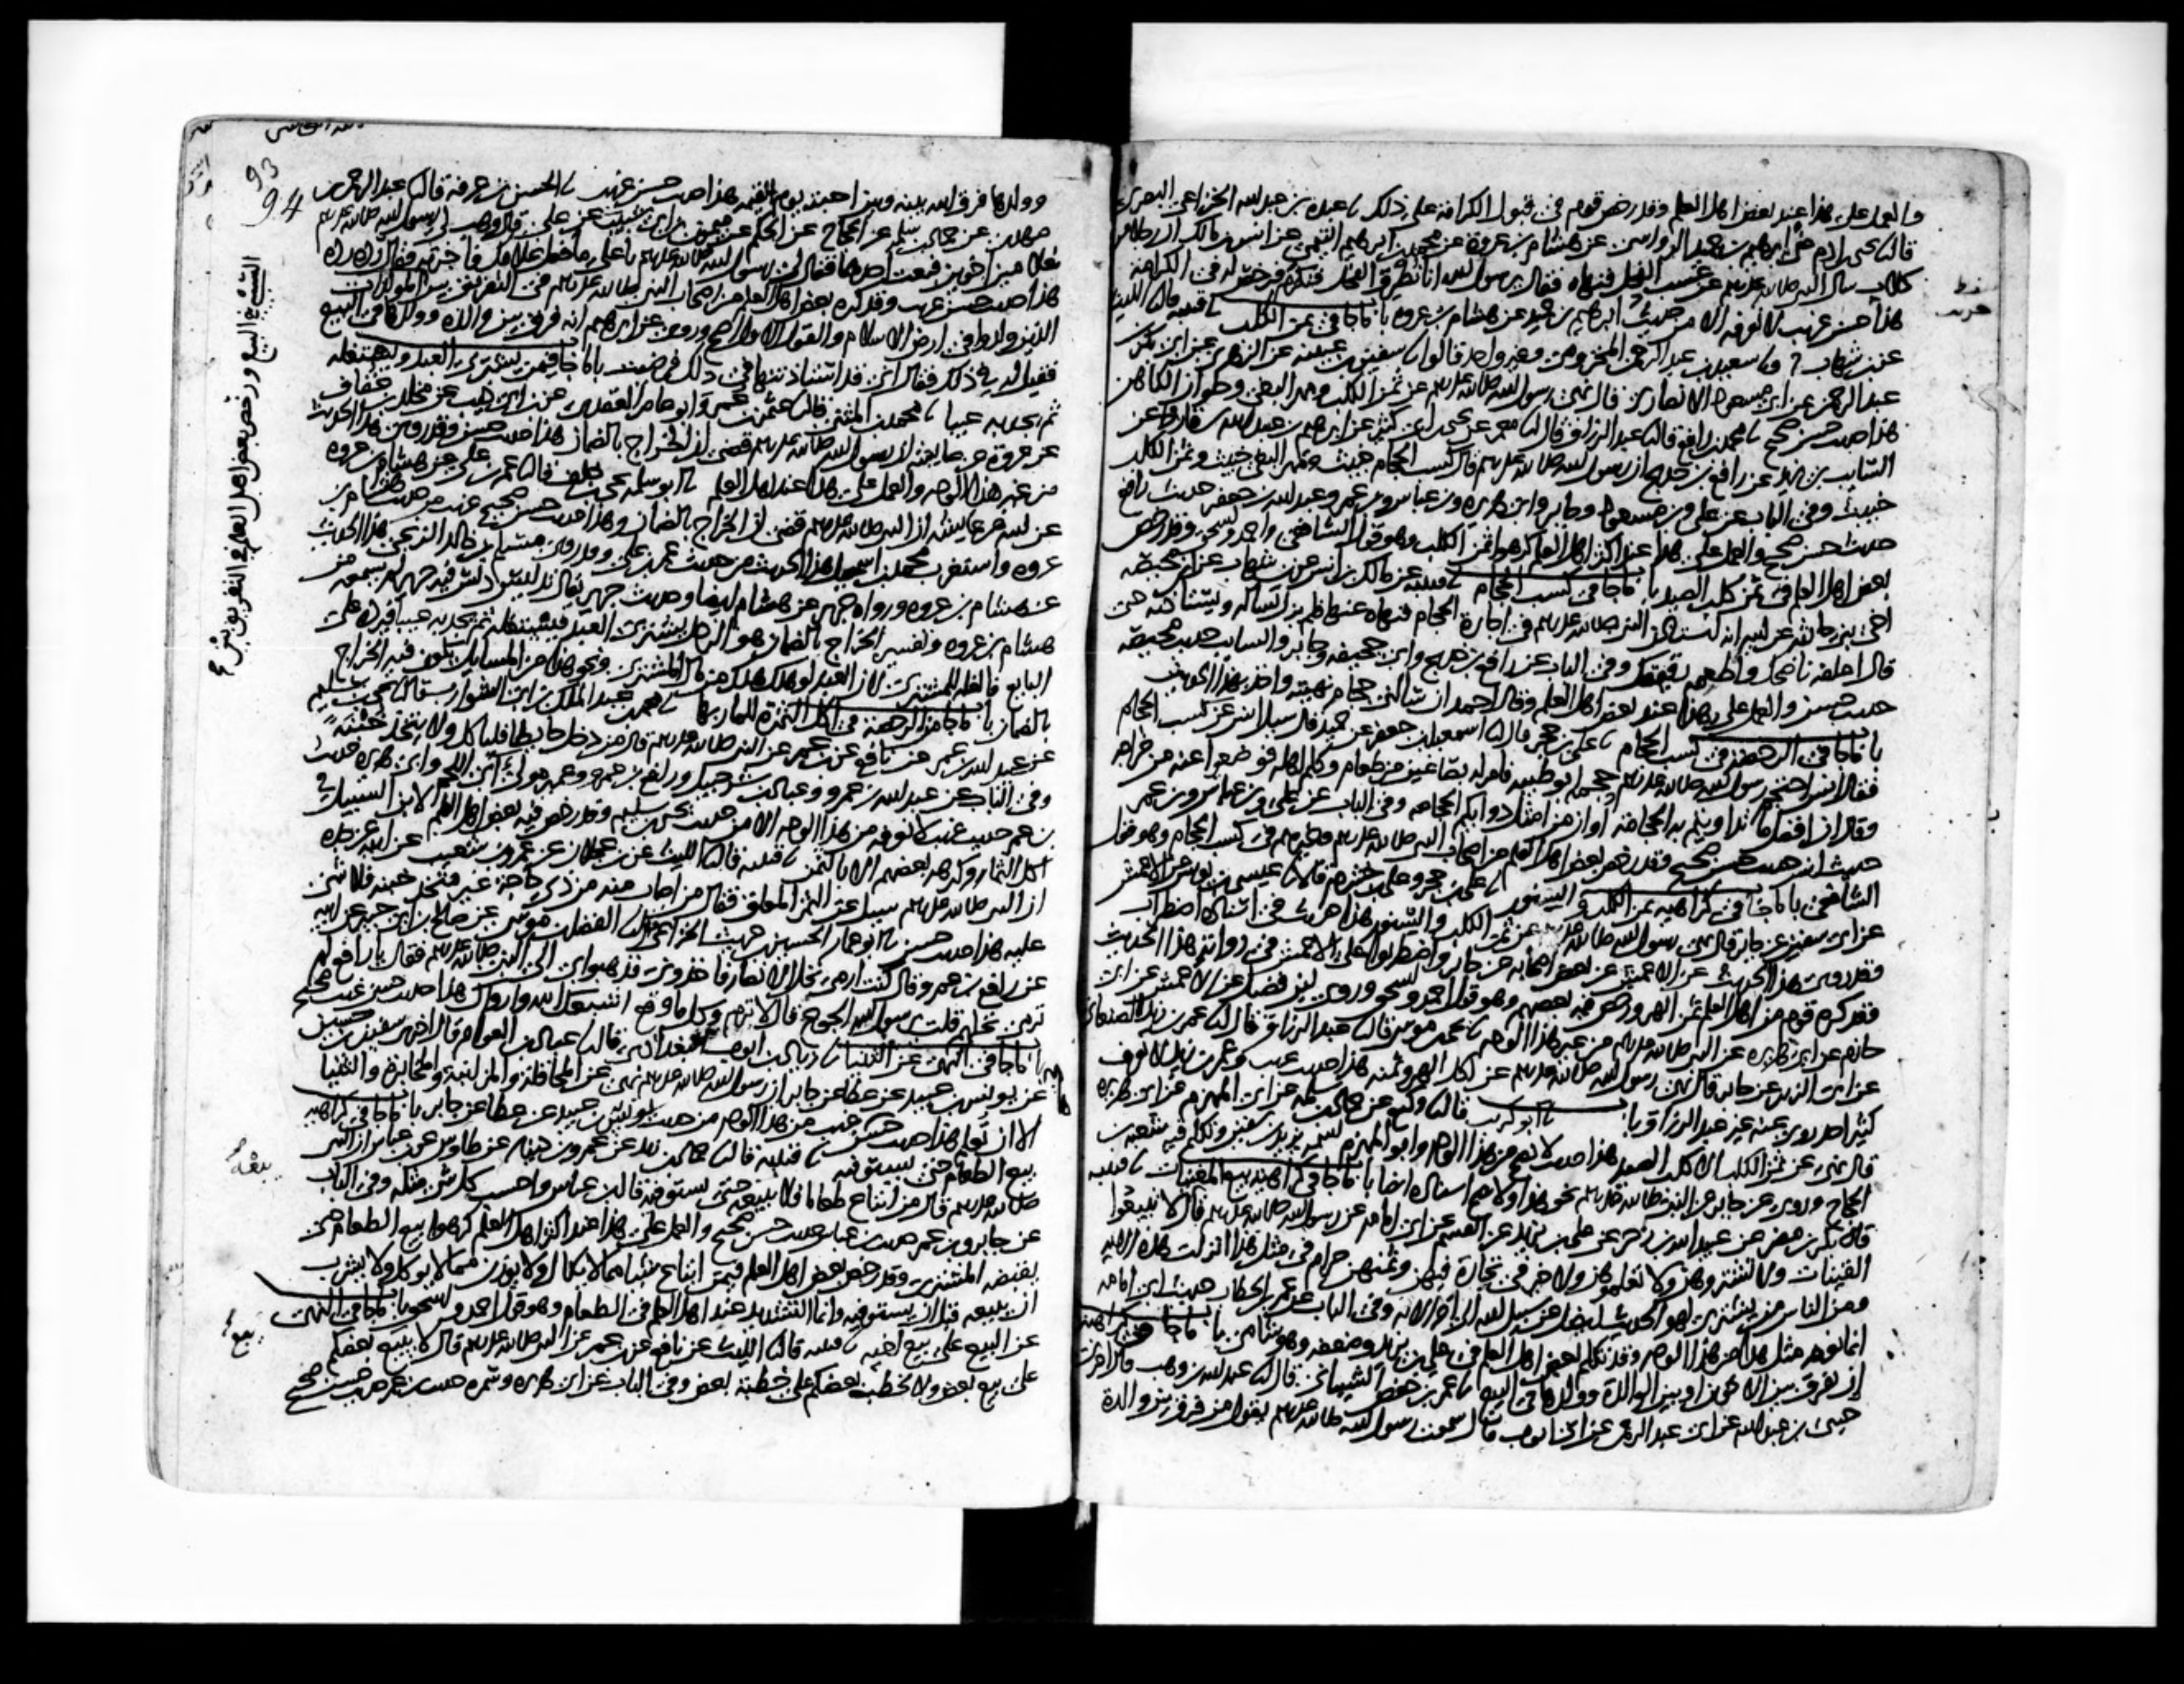 والعمل على هذا عند بعض اهل العلم وقد رخص قوم في قبول الكرامة على ذلك نا عبدة بن عبد الله الخزاعي البصري
قال نا يحيى بن ادم عن ابرهيم بن حميد الرواسي عن هشام بن عروة عن محمد بن ابرهيم التيمي عن انس بن مالك ان رجلا من
كلاب سال النبي صلى الله عليه وسلم عن عسب الفحل فنهاه فقال يرسول الله انا نطرق الفحل فنكرم فرخص له في الكرامة
هذا حسن غريب لا نعرفه الا من حديث ابرهيم بن حميد عن هشام بن عروة باب ما جا في ثمن الكلب نا قتيبة قال نا الليث
عن بن شهاب ح ونا سعيد بن عبد الرحمن المخزومي وغير واحد قالوا نا سفين بن عيينة عن الزهري عن ابي بكر بن
عبد الرحمن عن ابي مسعود الانصاري قال نهى رسول الله صلى الله عليه وسلم عن ثمن الكلب ومهر البغي وحلوان الكاهن
هذا حديث حسن صحيح نا محمد بن رافع قال نا عبد الرزاق قال نا معمر عن يحيى بن ابي كثير عن ابرهيم بن عبد الله بن قارظ عن
السايب بن يزيد عن رافع بن خديج ان رسول الله صلى الله عليه وسلم قال كسب الحجام خبيث ومهر البغي خبيث وثمن الكلب
خبيث وفي الباب عن علي وبن مسعود وجابر وابي هريرة وبن عباس وبن عمر وعبد الله بن جعفر حديث رافع
حديث حسن صحيح والعمل على هذا عند اكثر اهل العلم كرهوا ثمن الكلب وهو قول الشافعي واحمد واسحق وقد رخص
بعض اهل العلم في ثمن كلب الصيد باب ما جا في كسب الحجام نا قتيبة عن مالك بن انس عن بن شهاب عن بن محيصة
اخي بني حارثة عن ابيه انه استاذن النبي صلى الله عليه وسلم في اجارة الحجام فنهاه عنها فلم يزل يساله ويستاذنه حتى
قال اعلفه ناضحك واطعمه رقيقك وفي الباب عن رافع بن خديج وابي جحيفة وجابر والسايب حديث محيصة
حديث حسن والعمل على هذا عند بعض اهل العلم وقال احمد ان سالني حجام نهيته واخذ بهذا الحديث
باب ما جا في الرخصة في كسب الحجام نا علي بن حجر قال نا اسمعيل بن جعفر عن حميد قال سيل انس عن كسب الحجام
فقال انس احتجم رسول الله صلى الله عليه وسلم حجمه ابو طيبة فامر له بصاعين من طعام وكلم اهله فوضعوا عنه من خراجه
وقال ان افضل ما تداويتم به الحجامة او ان من امثل دوايكم الحجامة وفي الباب عن علي وبن عباس وبن عمر
حديث انس حديث حسن صحيح وقد رخص بعض اهل العلم من اصحاب النبي صلى الله عليه وسلم وغيرهم في كسب الحجام وهو قول
الشافعي باب ما جا في كراهية ثمن الكلب والسنور نا علي بن حجر وعلي بن خشرم قالا نا عيسى بن يونس عن الاعمش
عن ابي سفين عن جابر قال نهى رسول الله صلى الله عليه وسلم عن ثمن الكلب والسنور هذا حديث في اسناده اضطراب
وقد روي هذا الحديث عن الاعمش عن بعض اصحابه عن جابر واضطربوا على الاعمش في رواية هذا الحديث
وقد كره قوم من اهل العلم ثمن الهر ورخص فيه بعضهم وهو قول احمد واسحق وروى بن فضيل عن الاعمش عن ابي
حازم عن ابي هريرة عن النبي صلى الله عليه وسلم من غير هذا الوجه نا يحيى بن موسى قال نا عبد الرزاق قال نا عمر بن زيد الصنعاني
عن ابي الزبير عن جابر قال نهى رسول الله صلى الله عليه وسلم عن اكل الهر وثمنه هذا حديث غريب وعمر بن زيد لا نعرف
كثير احد روى عنه غير عبد الرزاق باب نا ابو كريب قال نا وكيع عن حماد بن سلمة عن ابي المهزم عن ابي هريرة
قال نهى عن ثمن الكلب الا كلب الصيد هذا حديث لا يصح من هذا الوجه وابو المهزم اسمه يزيد بن سفين وتكلم فيه شعبة بن
الحجاج وروي عن جابر عن النبي صلى الله عليه وسلم نحو هذا ولا يصح اسناده ايضا باب ما جا في كراهية بيع المغنيات نا قتيبة
قال نا بكر بن مضر عن عبيد الله بن زحر عن علي بن يزيد عن القسم عن ابي امامة عن رسول الله صلى الله عليه وسلم قال لا تبيعوا
القينات ولا تشتروهن ولا تعلموهن ولا خير في تجارة فيهن وثمنهن حرام في مثل هذا انزلت هذه الاية
ومن الناس من يشتري لهو الحديث ليضل عن سبيل الله الى اخر الاية وفي الباب عن عمر بن الخطاب حديث ابي امامة
انما نعرفه مثل هذا من هذا الوجه وقد تكلم بعض اهل العلم في علي بن يزيد وضعفه وهو شامي باب ما جا في كراهية
ان يفرق بين الاخوين او بين الوالدة وولدها في البيع نا عمر بن حفص الشيباني قال نا عبد الله بن وهب قال اخبرني
حيي بن عبد الله عن ابي عبد الرحمن عن ابي ايوب قال سمعت رسول الله صلى الله عليه وسلم يقول من فرق بين والدة
93
94
وولدها فرق الله بينه وبين احبته يوم القيمة هذا حديث حسن غريب نا الحسن بن عرفة قال نا عبد الرحمن بن
مهدي عن حماد بن سلمة عن الحجاج عن الحكم عن ميمون بن ابي شبيب عن علي قال وهب لي رسول الله صلى الله عليه وسلم
غلامين اخوين فبعت احدهما فقال لي رسول الله صلى الله عليه وسلم يا علي ما فعل غلامك فاخبرته فقال رده رده
هذا حديث حسن غريب وقد كره بعض اهل العلم من اصحاب النبي صلى الله عليه وسلم في التفريق بين المولدات
الذين ولدوا في ارض الاسلام والقول الاول اصح وروي عن ابرهيم انه فرق بين والدة وولدها في البيع
فقيل له في ذلك فقال اني قد استاذنتها في ذلك فرضيت باب ما جا فيمن يشتري العبد ويستغله
ثم يجد به عيبا نا محمد بن المثنى قال نا عثمن بن عمر وابو عامر العقدي عن بن ابي ذيب عن مخلد بن خفاف
عن عروة عن عايشة ان رسول الله صلى الله عليه وسلم قضى ان الخراج بالضمان هذا حديث حسن وقد روي هذا الحديث
من غير هذا الوجه والعمل على هذا عند اهل العلم نا ابو سلمة يحيى بن خلف قال نا عمر بن علي عن هشام بن عروة
عن ابيه عن عايشة ان النبي صلى الله عليه وسلم قضى ان الخراج بالضمان وهذا حديث حسن صحيح غريب من حديث هشام بن
عروة واستغرب محمد بن اسمعيل هذا الحديث من حديث عمر بن علي وقد روى مسلم بن خالد الزنجي هذا الحديث
عن هشام بن عروة ورواه جرير عن هشام ايضا وحديث جرير يقال تدليس دلس فيه جرير لم يسمعه من
هشام بن عروة وتفسير الخراج بالضمان هو الرجل يشتري العبد فيستغله ثم يجد به عيبا فيرده على
البايع فالغلة للمشتري لان العبد لو هلك هلك من مال المشتري ونحو هذا من المسايل يكون فيه الخراج
بالضمان باب ما جا من الرخصة في اكل الثمرة للمار بها نا محمد بن عبد الملك بن ابي الشوارب قال نا يحيى بن سليم
عن عبيد الله بن عمر عن نافع عن بن عمر عن النبي صلى الله عليه وسلم قال من دخل حايطا فلياكل ولا يتخذ خبنة
وفي الباب عن عبد الله بن عمرو وعباد بن شرحبيل ورافع بن عمرو وعمير مولى ابي اللحم وابي هريرة حديث
بن عمر حديث غريب لا نعرفه من هذا الوجه الا من حديث يحيى بن سليم وقد رخص فيه بعض اهل العلم لابن السبيل في
اكل الثمار وكرهه بعضهم الا بالثمن نا قتيبة قال نا الليث عن بن عجلان عن عمرو بن شعيب عن ابيه عن جده
ان النبي صلى الله عليه وسلم سيل عن الثمر المعلق فقال من اصاب منه من ذي حاجة غير متخذ خبنة فلا شي
عليه هذا حديث حسن نا ابو عمار الحسين بن حريث الخزاعي قال نا الفضل بن موسى عن صالح بن ابي جبير عن ابيه
عن رافع بن عمرو قال كنت ارمي نخل الانصار فاخذوني فذهبوا بي الى النبي صلى الله عليه وسلم فقال يا رافع لم
ترمي نخلهم قلت يرسول الله الجوع قال لا ترم وكل ما وقع اشبعك الله وارواك هذا حديث حسن غريب صحيح
باب ما جا في النهي عن الثنيا نا زياد بن ايوب البغدادي قال نا عباد بن العوام قال اخبرني سفين بن حسين
عن يونس بن عبيد عن عطا عن جابر ان رسول الله صلى الله عليه وسلم نهى عن المحاقلة والمزابنة والمخابرة والثنيا
الا ان تعلم هذا حديث حسن غريب من هذا الوجه من حديث يونس بن عبيد عن عطا عن جابر باب ما جا في كراهية
بيع الطعام حتى يستوفيه نا قتيبة قال نا حماد بن زيد عن عمرو بن دينار عن طاوس عن بن عباس ان النبي
صلى الله عليه وسلم قال من ابتاع طعاما فلا يبيعه حتى يستوفيه قال بن عباس واحسب كل شي مثله وفي الباب
عن جابر وبن عمر حديث بن عباس حديث حسن صحيح والعمل على هذا عند اكثر اهل العلم كرهوا بيع الطعام حتى
يقبضه المشتري وقد رخص بعض اهل العلم فيمن ابتاع شيئا مما لا يكال ولا يوزن مما لا يوكل ولا يشرب
ان يبيعه قبل ان يستوفيه وانما التشديد عند اهل العلم في الطعام وهو قول احمد واسحق باب ما جا في النهي
عن البيع على بيع اخيه نا قتيبة قال نا الليث عن نافع عن بن عمر عن النبي صلى الله عليه وسلم قال لا يبيع بعضكم
على بيع بعض ولا يخطب بعضكم على خطبة بعض وفي الباب عن ابي هريرة وسمرة حديث بن عمر حديث حسن صحيح
السبي في البيع ورخص بعض اهل العلم في التفريق بين
يبعه
يبيع